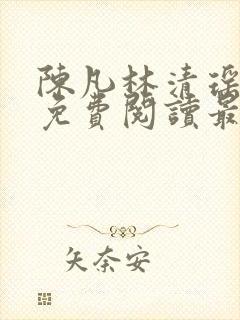 陳凡林清瑤
免費閱讀最
矢奈安